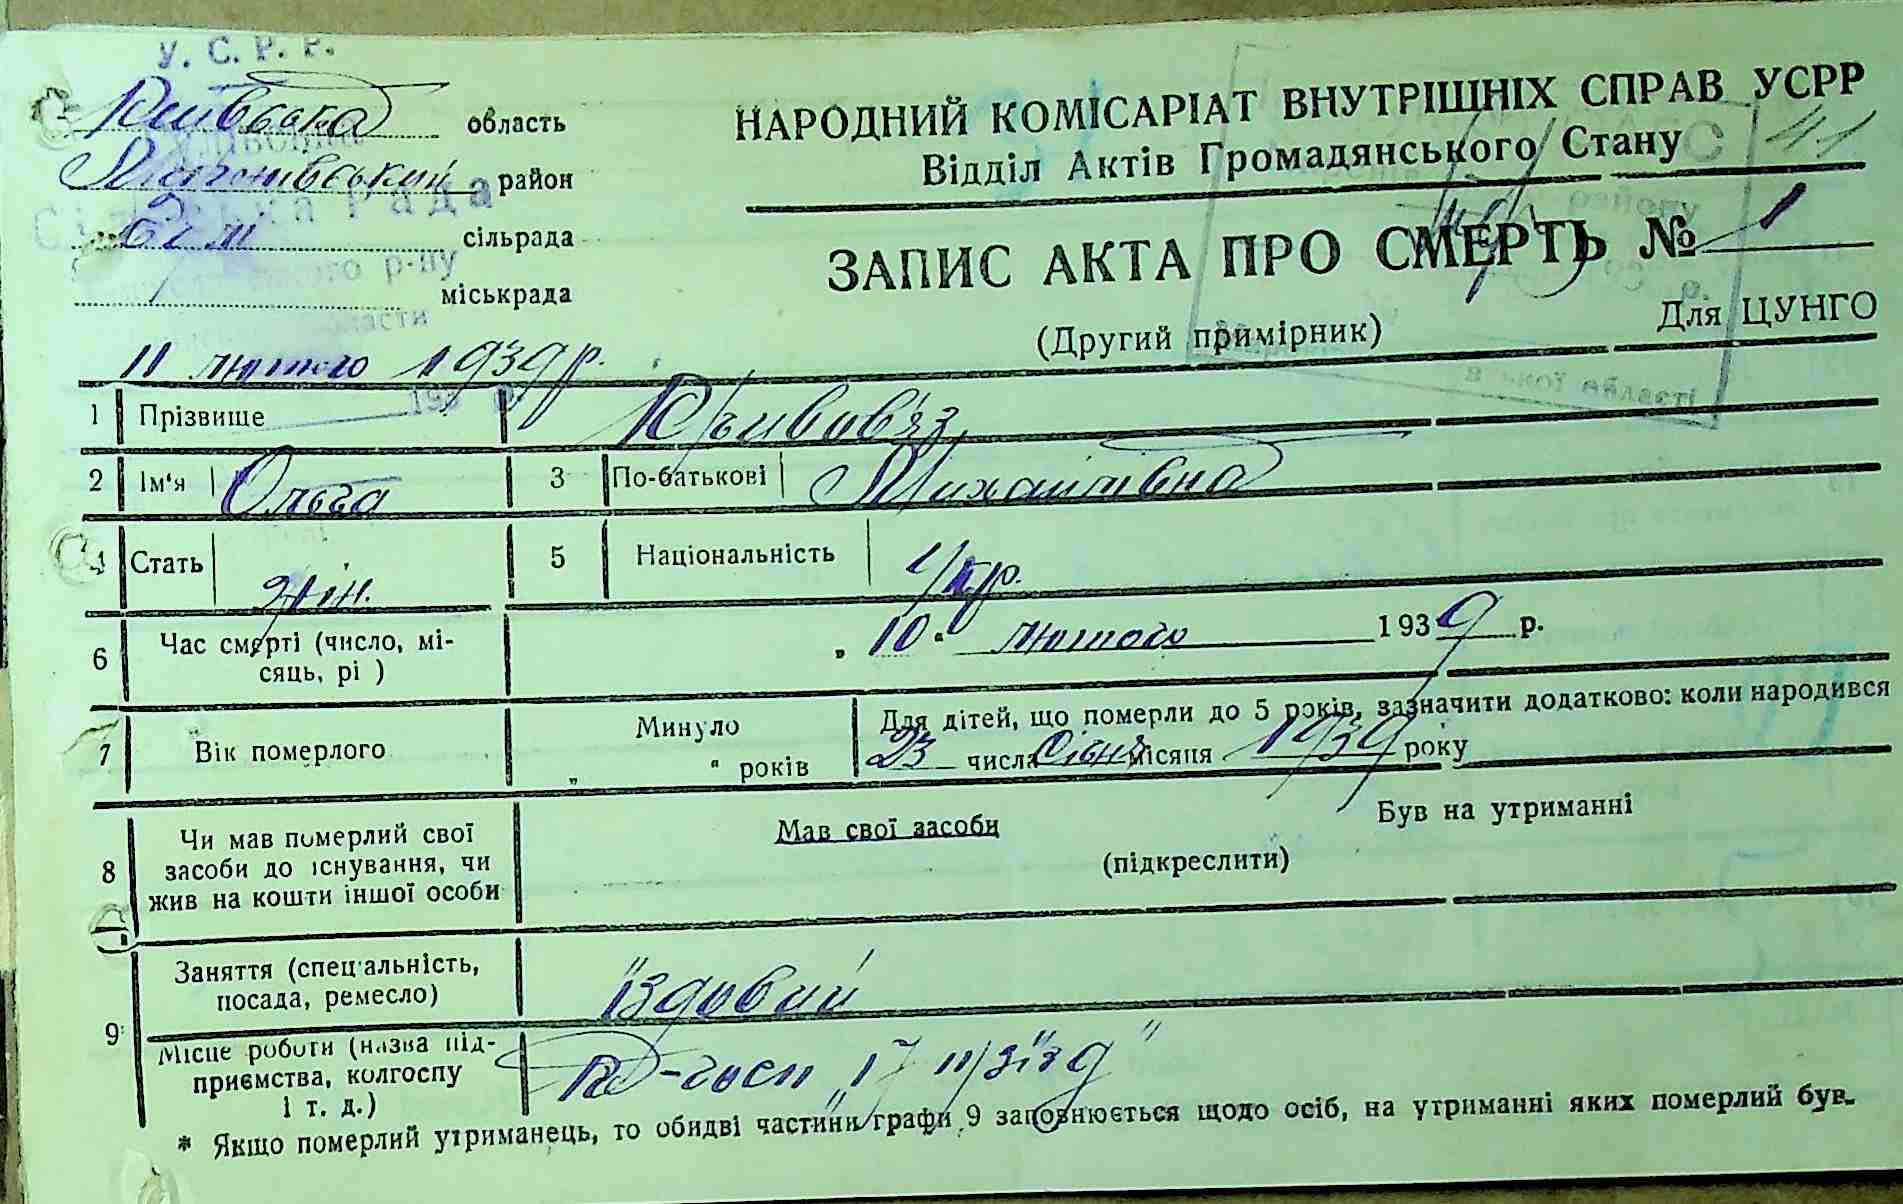 У. С. Р. Р.
Київська область
район
Сільська Рада
сільрада
р-ну
міськрада
НАРОДНИЙ КОМІСАРІАТ ВНУТРІШНІХ СПРАВ УСРР
Відділ Актів Громадянського Стану 41
ЗАПИС АКТА ПРО СМЕРТЬ № 1
(Другий примірник) Для ЦУНГО
11 лютого 1939 р.
1 Прізвище
2 Ім'я Ольга 3 По-батькові Михайлівна
4 Стать жін. 5 Національність Укр.
6 Час смерті (число, мі-
сяць, рі ) „ 10 " лютого 1939 р.
7 Вік померлого Минуло „ " років
Для дітей, що померли до 5 років, зазначити додатково: коли народився
23 числа Січня місяця 1939 року
8 Чи мав померлий свої
засоби до існування, чи
жив на кошти іншої особи
Мав свої засоби Був на утриманні
(підкреслити)
9 Заняття (спеціальність,
посада, ремесло) їздовий
Місце роботи (назва під-
приємства, колгоспу
і т. д.) Рад-госп „17 п/зїзд"
* Якщо померлий утриманець, то обидві частини графи 9 заповнюється щодо осіб, на утриманні яких померлий був.